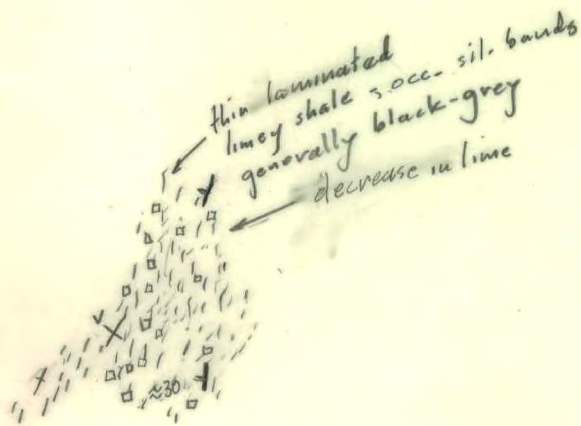 thin laminated
limey shale s occ. sil. bands
generally black-grey
decrease in lime
v
≈30